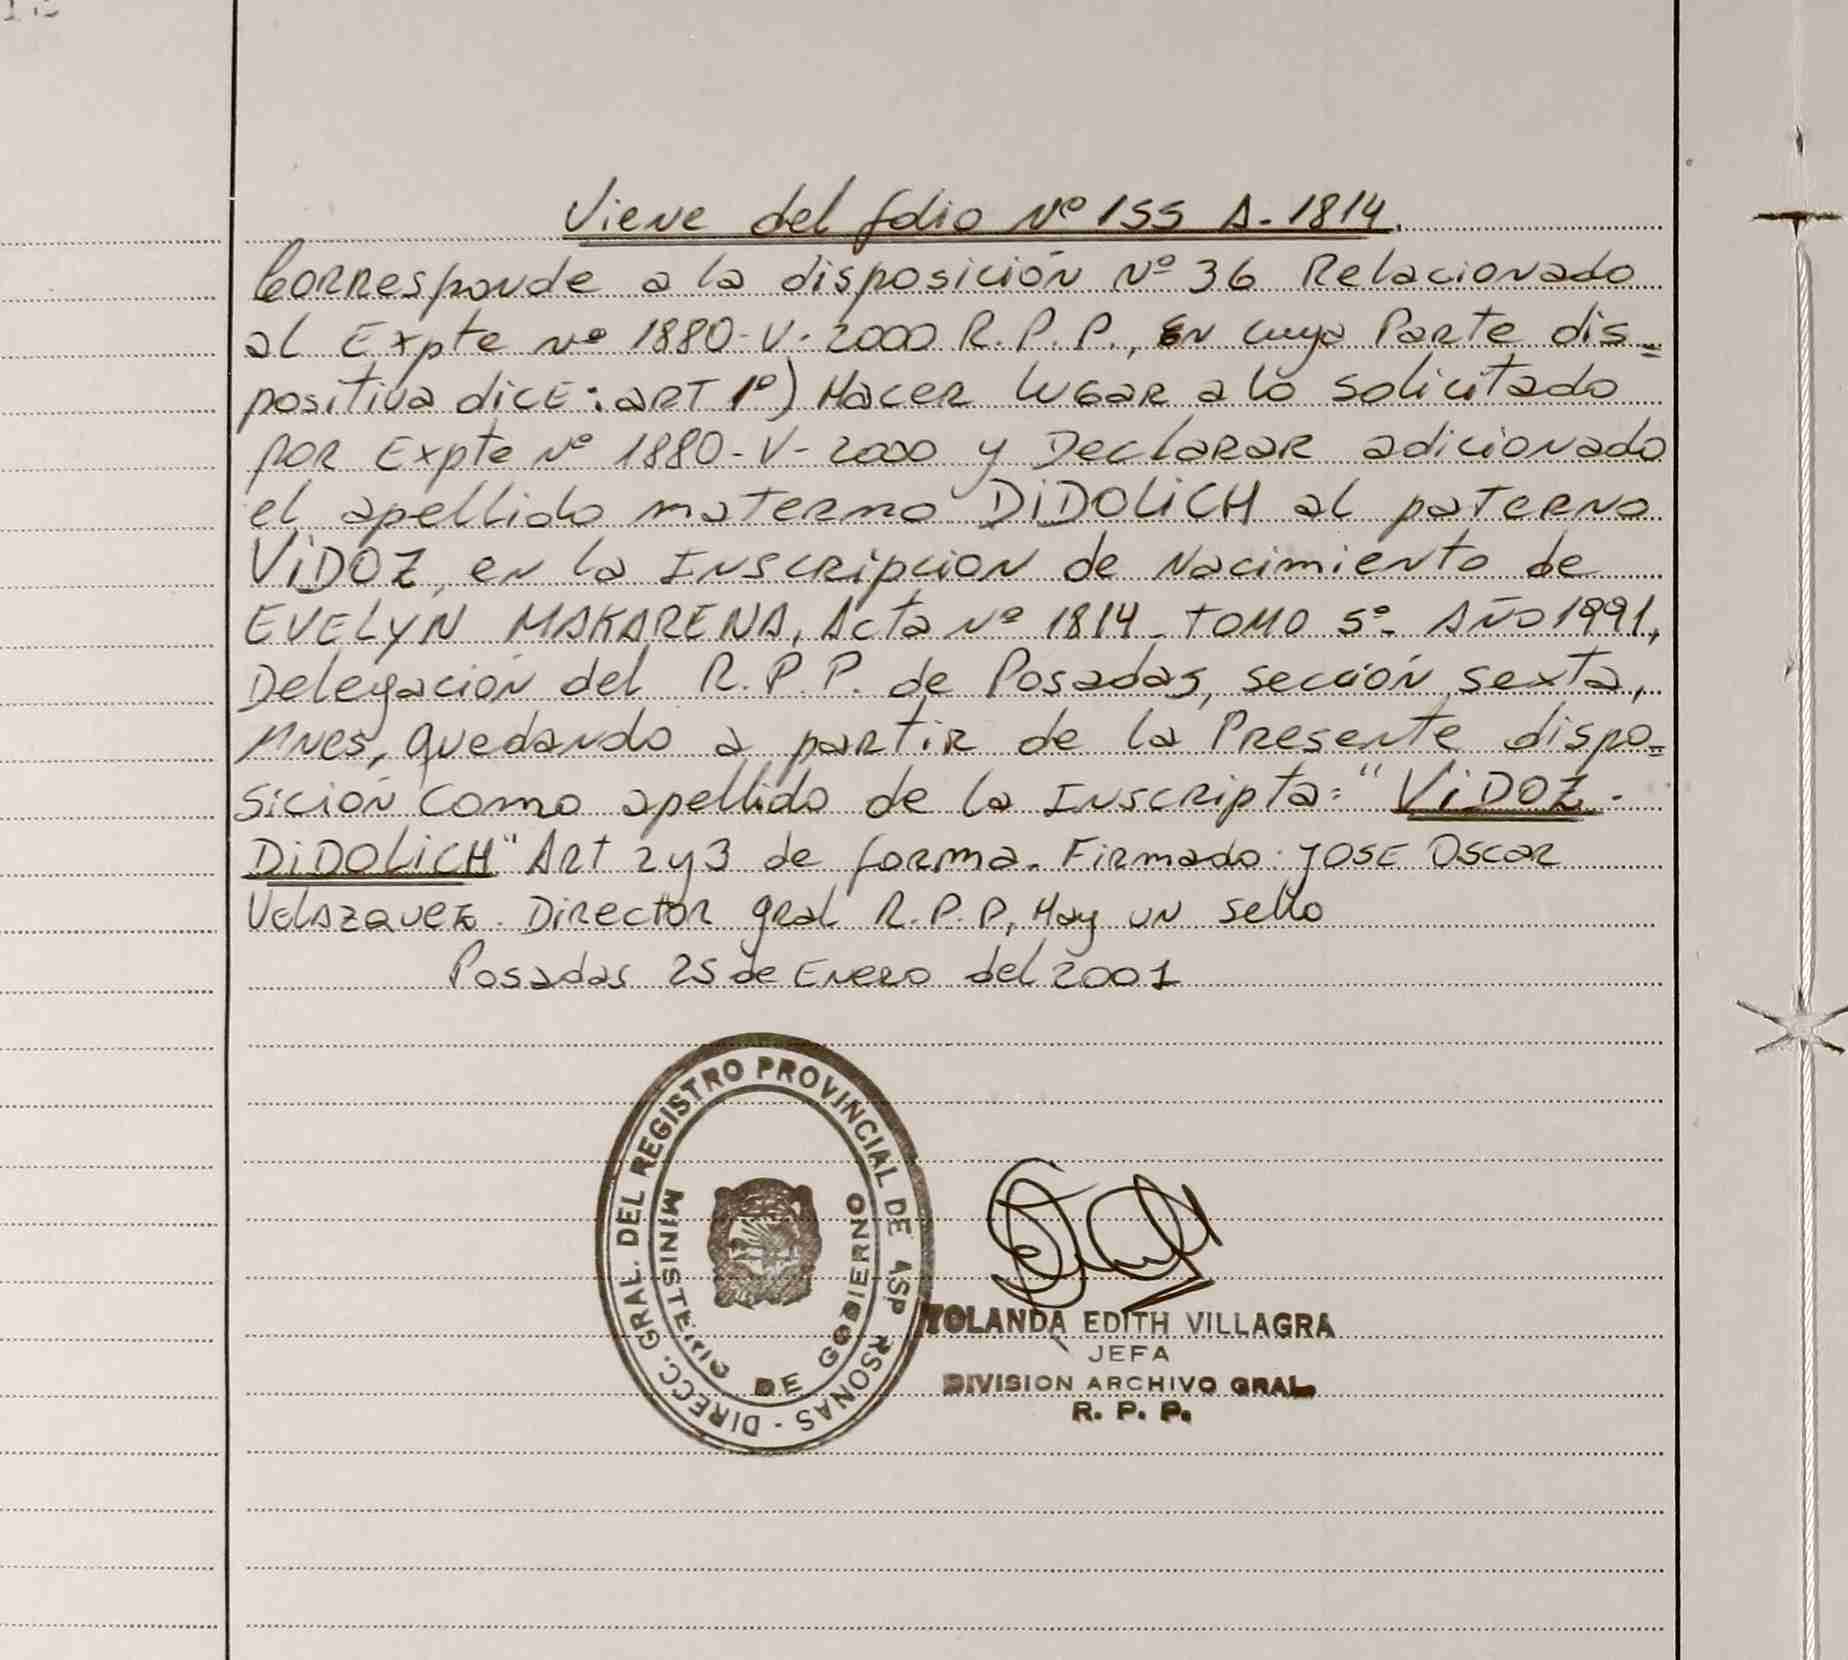 Viene del folio Nº 155 A-1814.
Corresponde a la disposición Nº 36 Relacionado
al Expte nº 1880-V-2000 R.P.P., EN cuya Parte dis=
positiva dice: ART 1º) Hacer lugar a lo solicitado
por Expte Nº 1880-V-2000 y Declarar adicionado
el apellido materno DIDOLICH al paterno
VIDOZ, en la Inscripcion de Nacimiento de
EVELYN MAKARENA, Acta Nº 1814 - TOMO 5º - AÑO 1991,
Delegación del R.P.P. de Posadas, sección sexta,
Mnes, quedando a partir de la Presente dispo=
sición como apellido de la Inscripta: "VIDOZ -
DIDOLICH" Art 2 y 3 de forma. Firmado: JOSE Oscar
Velazquez. Director gral R.P.P, Hay un sello
Posadas 25 de Enero del 2001
DIRECC. GRAL. DEL REGISTRO PROVINCIAL DE ASP RSONAS -
MINISTERIO DE GOBIERNO
YOLANDA EDITH VILLAGRA
JEFA
DIVISION ARCHIVO GRAL.
R. P. P.